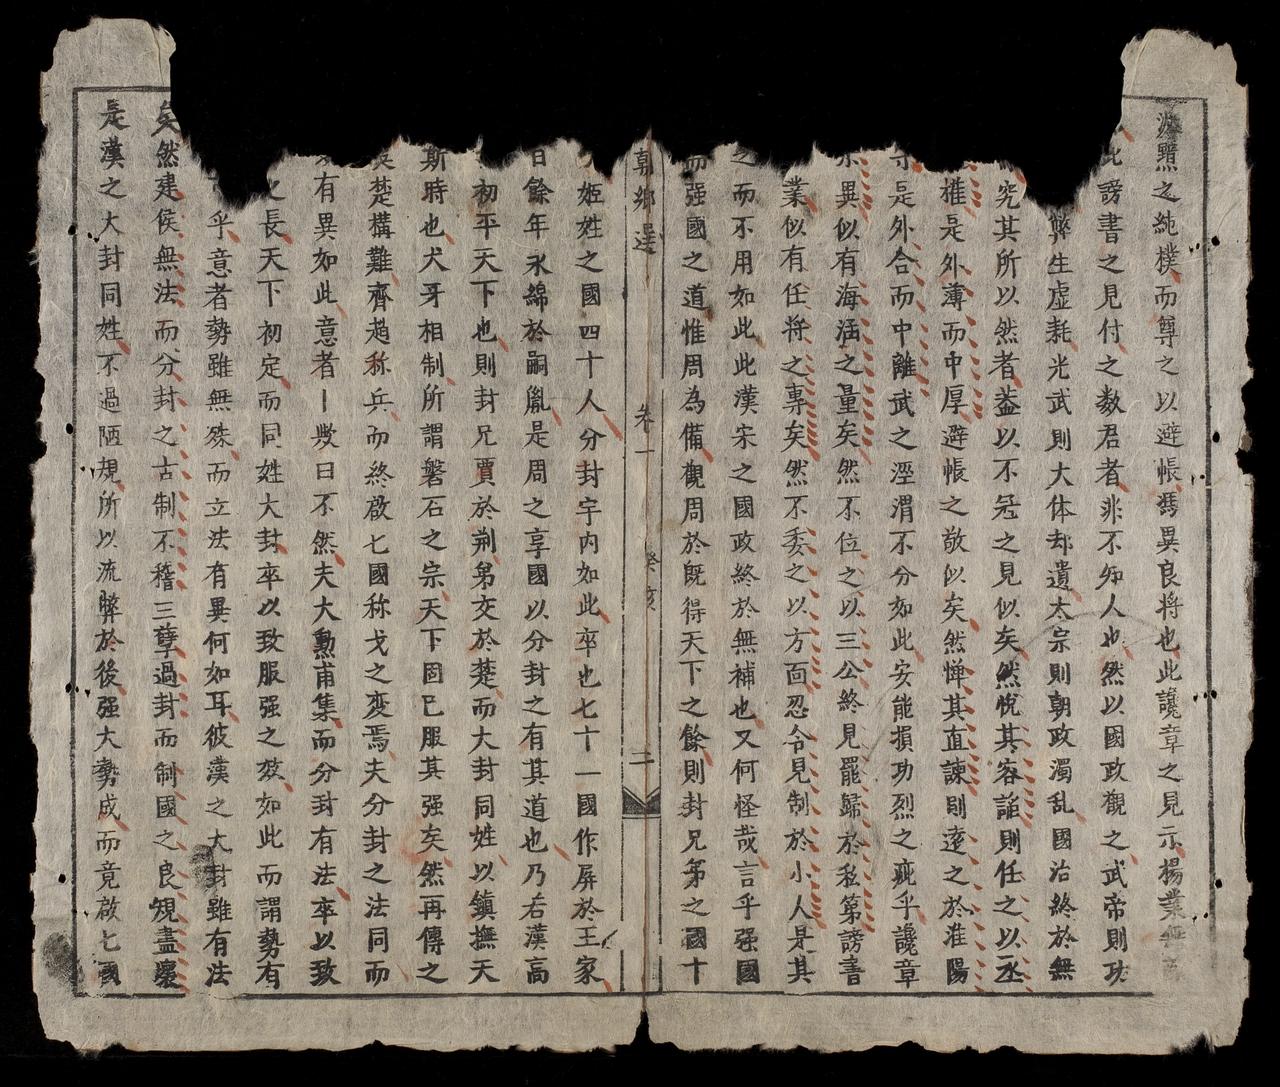 黯之純樸而尊之以避帳馮異良將也此讒章之見示揚業
此謗書之見付之数君者非不知人也然以國政觀之武帝則功
弊生虛耗光武則大体却遺太宗則朝政濁乱國治終於無
究其所以然者盖以不冠之見似矣然悅其容謡則任之以丞
推是外薄而中厚避帳之敬似矣然惮其直諫則遠之於淮陽
是外合而中離武之涇渭不分如此安能損功烈之疵乎讒章
異似有海涵之量矣然不位之以三公終見罷歸於私第謗書
業似有任將之專矣然不委之以方面忍令見制於小人是其
之而不用如此此漢宋之國政終於無補也又何怪哉言乎强國
而强國之道惟周為備觀周於既得天下之餘則封兄第之國十
朝鄉選 卷一 癸亥 二
姬姓之國四十人分封宇内如此卒也七十一國作屏於王家
日餘年永綿於嗣胤是周之享國以分封之有其道也乃若漢高
初平天下也則封兄賈於荆第交於楚而大封同姓以鎮撫天
斯時也犬牙相制所謂磐石之宗天下固已服其强矣然再傳之
吳楚構難齊趙称兵而終啟七國称戈之変焉夫分封之法同而
有異如此意者丨歟曰不然夫大勲甫集而分封有法卒以致
之長天下初定而同姓大封卒以致服强之效如此而謂勢有
乎意者勢雖無殊而立法有異何如耳彼漢之大封雖有法
矣然建侯無法而分封之古制不稽三孽過封而制國之良規盡壞
是漢之大封同姓不過陋規所以流弊於後强大勢成而竟啟七國